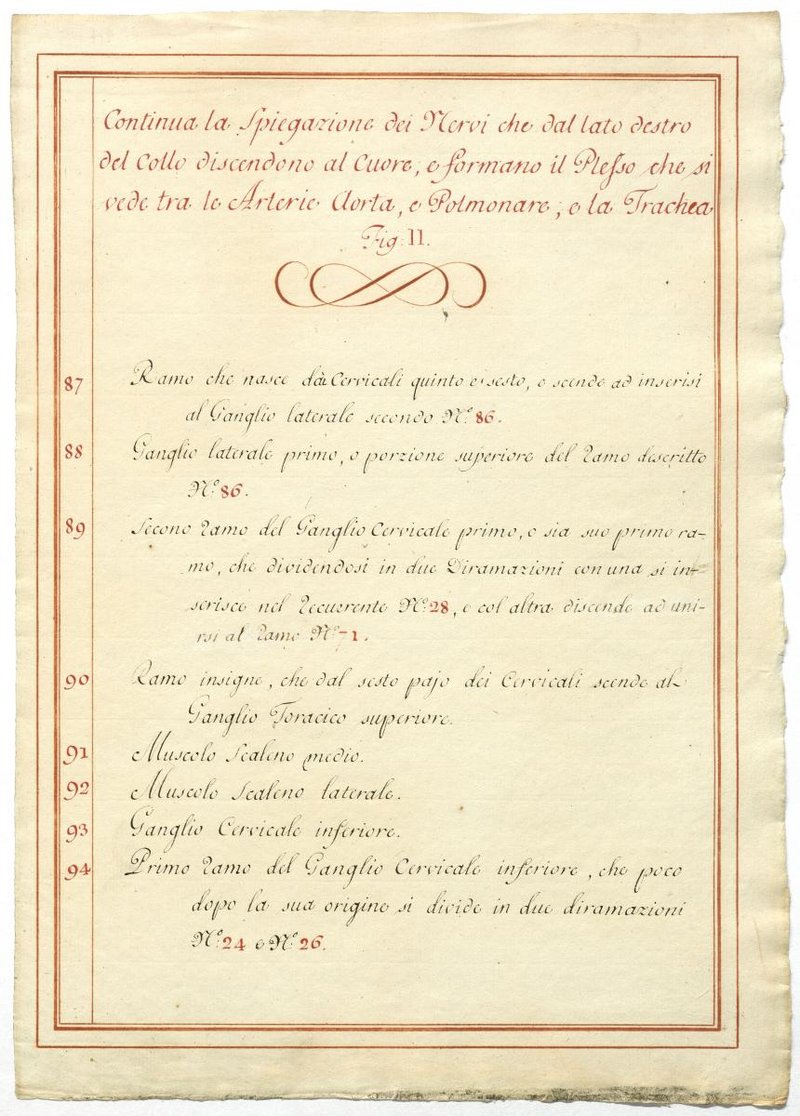 Continua la Spiegazione dei Nervi che dal lato destro
del Collo discendono al Cuore, e formano il Plesso che si
vede tra le Arterie Aorta, e Polmonare, e la Trachea
Fig: II.
87 Ramo che nasce dai Cervicali quinto e sesto, e scende ad inserisi
al Ganglio laterale secondo N.º 86.
88 Ganglio laterale primo, o porzione superiore del Ramo descritto
N.º 86.
89 Secono Ramo del Ganglio Cervicale primo, o sia suo primo ra-
mo, che dividendosi in due Diramazioni con una si in-
serisce nel Recurrente N.º 28, e col altra discende ad uni-
rsi al Ramo N.º 71.
90 Ramo insigne, che dal sesto pajo dei Cervicali scende al
Ganglio Toracico superiore.
91 Muscolo Scaleno medio.
92 Muscolo Scaleno laterale.
93 Ganglio Cervicale inferiore.
94 Primo Ramo del Ganglio Cervicale inferiore, che poco
dopo la sua origine si divide in due diramazioni
N.º 24 e N.º 26.